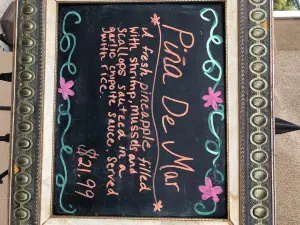 Piña De Mar
a fresh pineapple filled
with shrimp, mussels and
scallops sauteed in a
garlic chipotle sauce, served
with rice.
$21.99